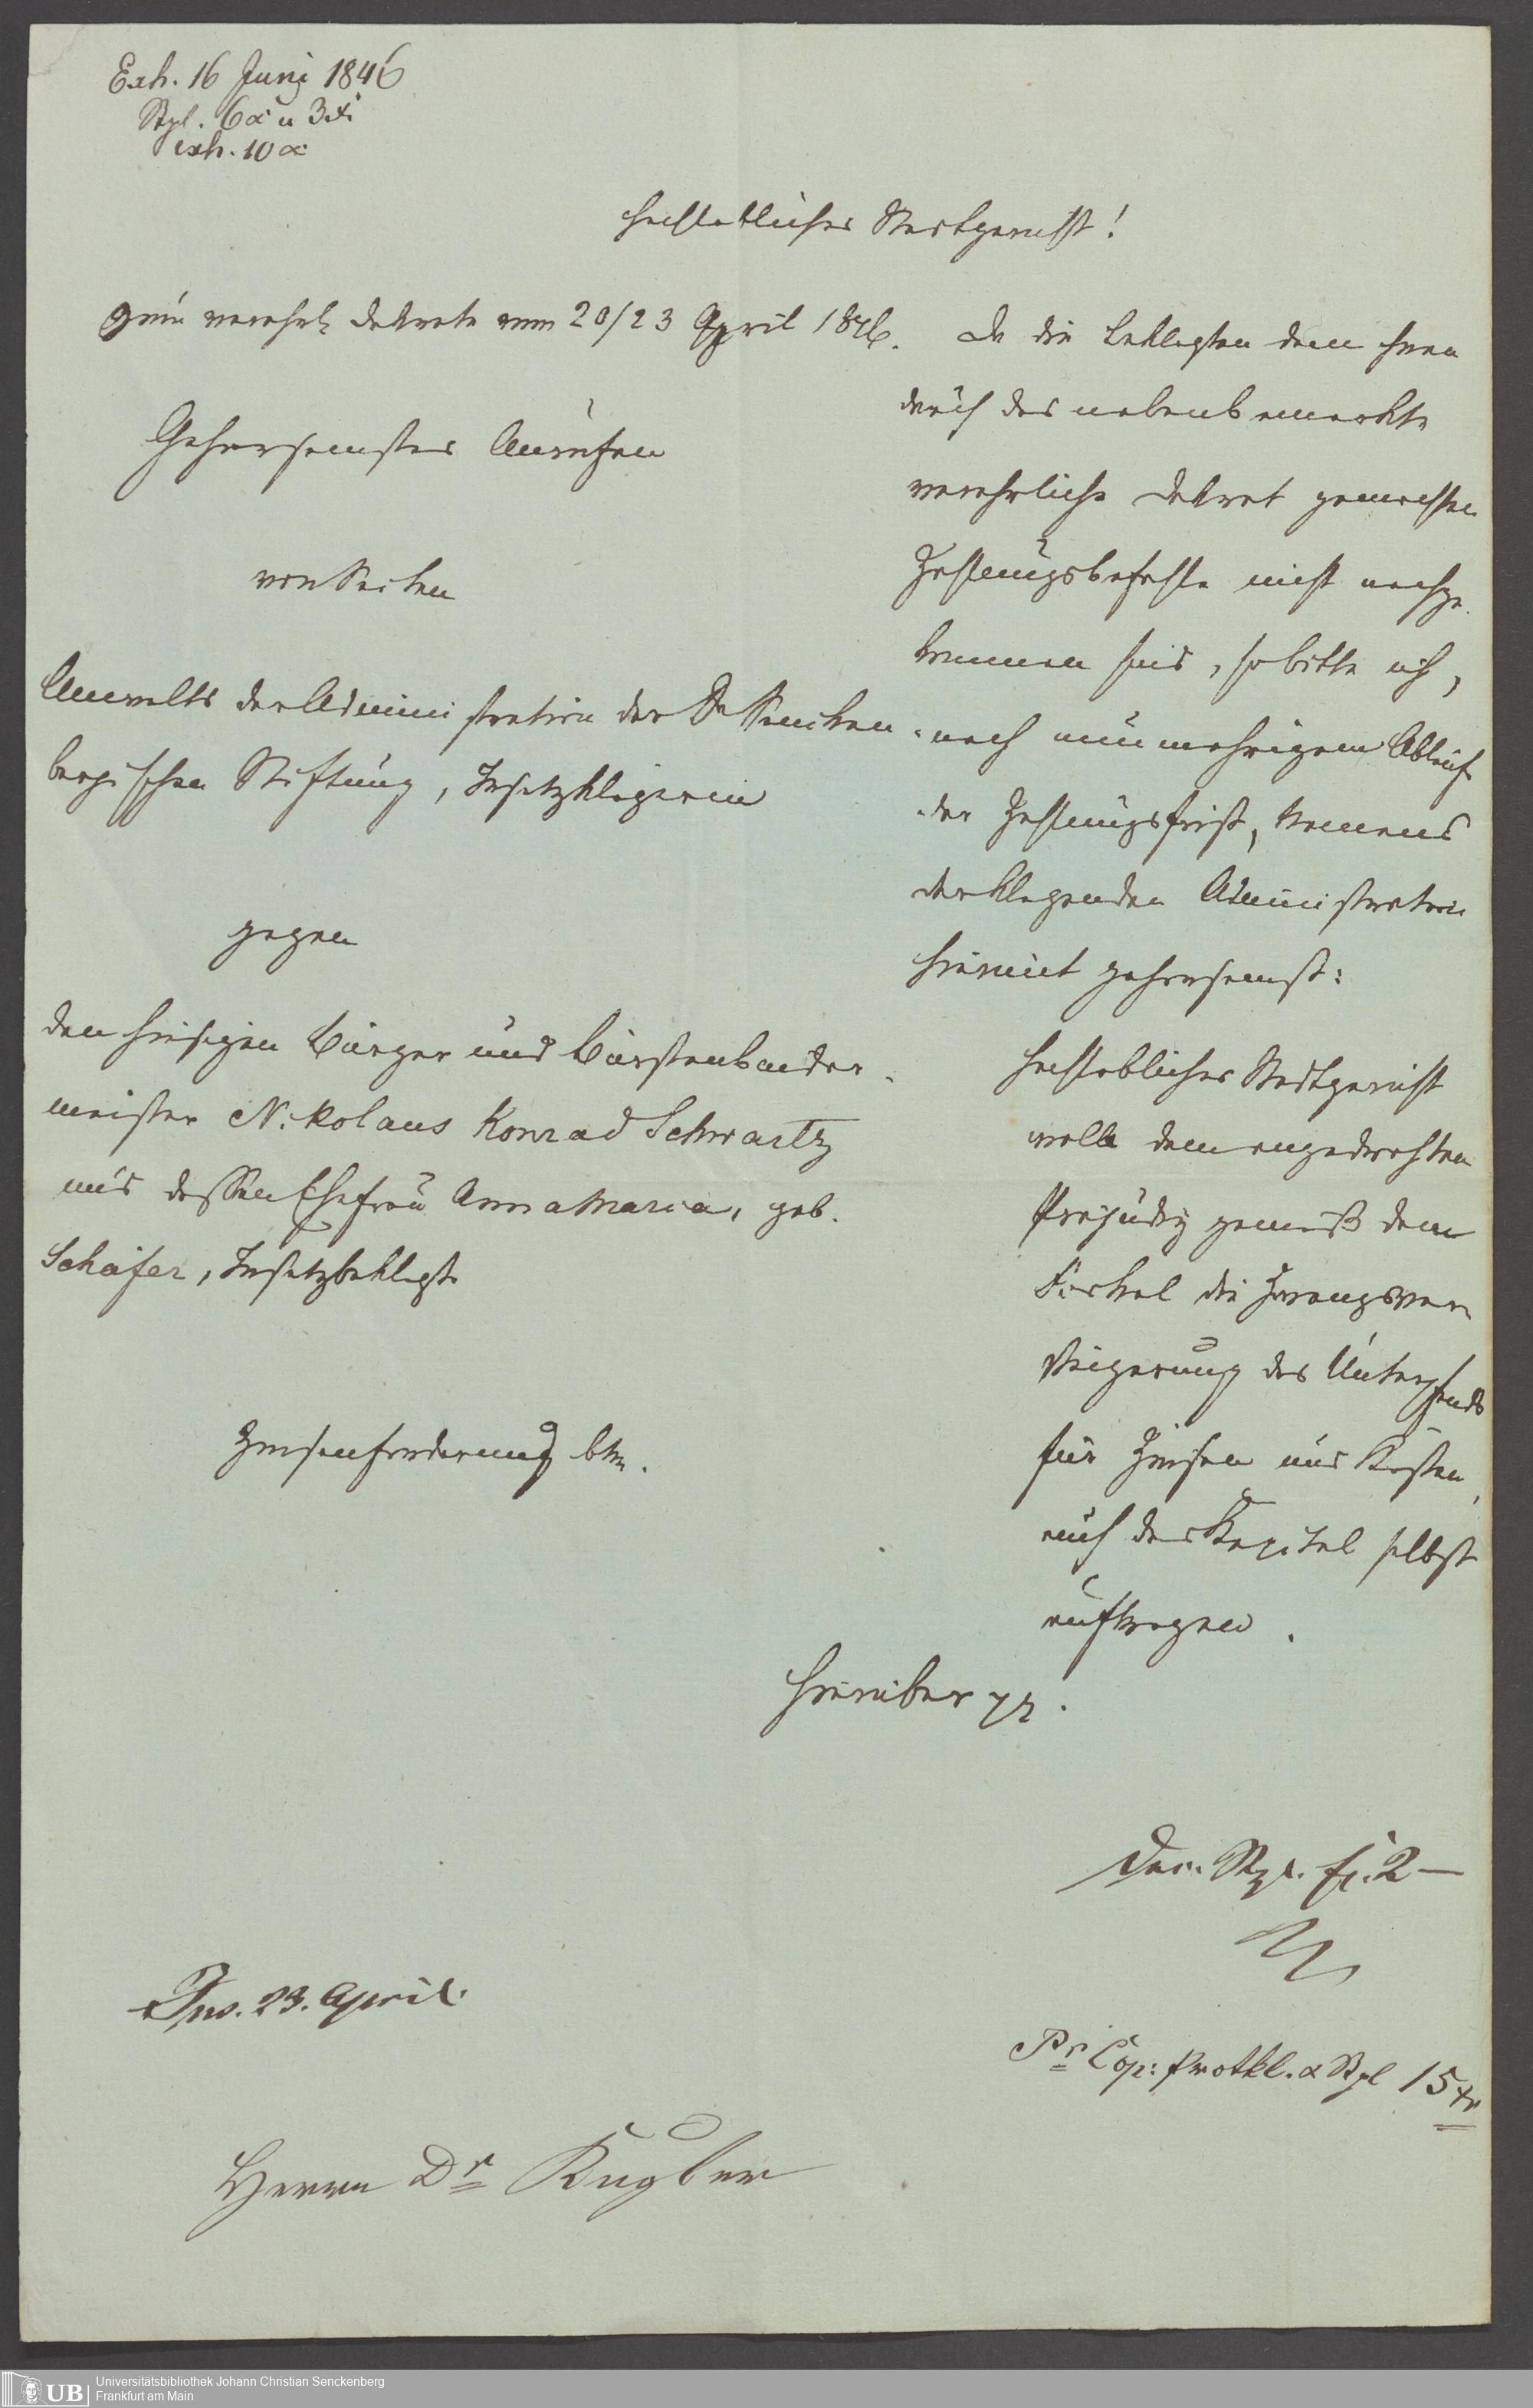 Exh. 16 Juni 1846
Stpl. 6 x u 3 x
exh. 10 x
Hochlöbliches Stadtgericht!
Zum verehrl. Dekrete vom 20/23 April 1846.
Gehorsamstes Anrufen
von Seiten
Anwalts der Administration der Dr Sencken-
bergischen Stiftung, Insatzklägerin
gegen
den hiesigen Bürger und Bürstenbinder-
meister Nikolaus Konrad Schwartz
und dessen Ehefrau Anna Maria, geb.
Schäfer, Insatzbeklagte
Zinsenforderung btr.
Da die Beklagten dem ihnen
durch das nebenbemerkte
verehrliche Dekret gemachten
Zahlungsbefehle nicht nachge-
kommen sind, so bitte ich,
nach nunmehrigem Ablauf
der Zahlungsfrist, Namens
der klagenden Administration
hiermit gehorsamst:
Hochlöbliches Stadtgericht
wolle dem angedrohten
Präjudiz gemäß dem
Fiskal die Zwangsver-
steigerung des Unterpfands
für Zinsen und Kosten,
auch das Kapital selbst
auftragen.
Hierüber pp.
Dec. Stpl. fl. 2 —
Ins. 23. April.
Pr Cop: Protkl. & Stpl 15 xr
Herrn Dr Kugler
UB
Universitätsbibliothek Johann Christian Senckenberg
Frankfurt am Main